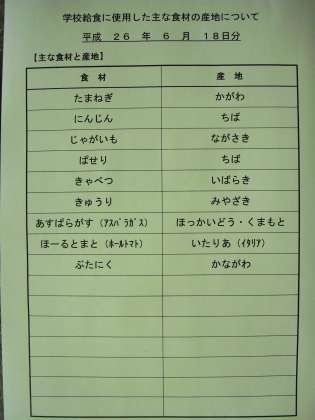 学校給食に使用した主な食材の産地について
平成 26 年 6 月 18日分
【主な食材と産地】
食 材 産 地
たまねぎ かがわ
にんじん ちば
じゃがいも ながさき
ぱせり ちば
きゃべつ いばらき
きゅうり みやざき
あすぱらがす (ｱｽﾊﾟﾗｶﾞｽ) ほっかいどう・くまもと
ほーるとまと (ﾎｰﾙﾄﾏﾄ) いたりあ (ｲﾀﾘｱ)
ぶたにく かながわ